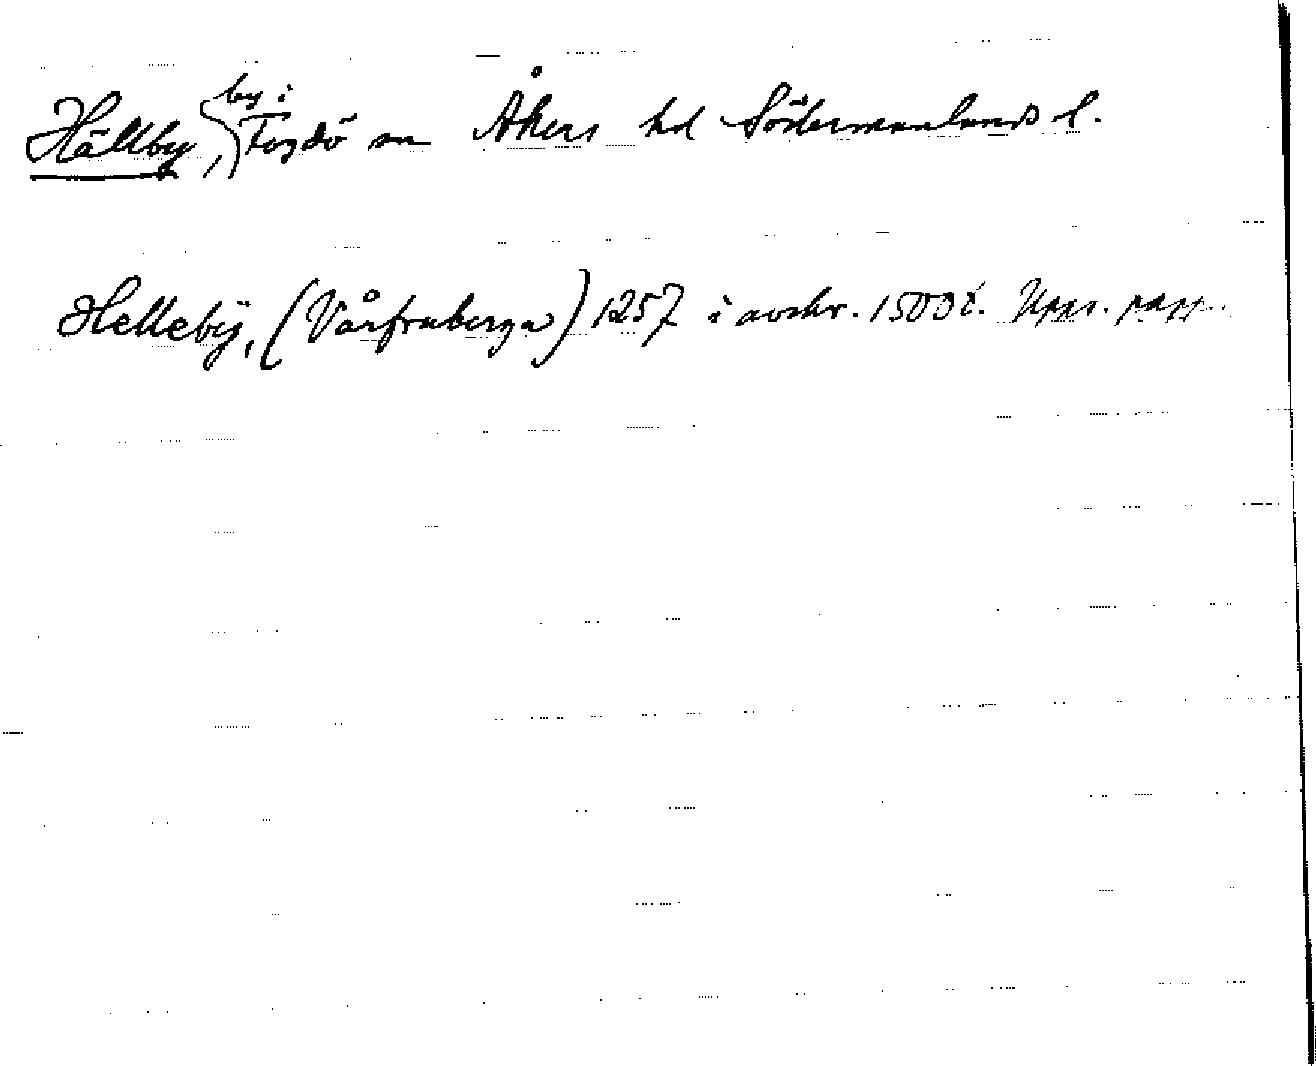 Hällby, by i Fogdö sn Åkers hd Södermanlands l.
Helleby, (Vårfruberga) 1257 i avskr. 1500t. Upps. papp.